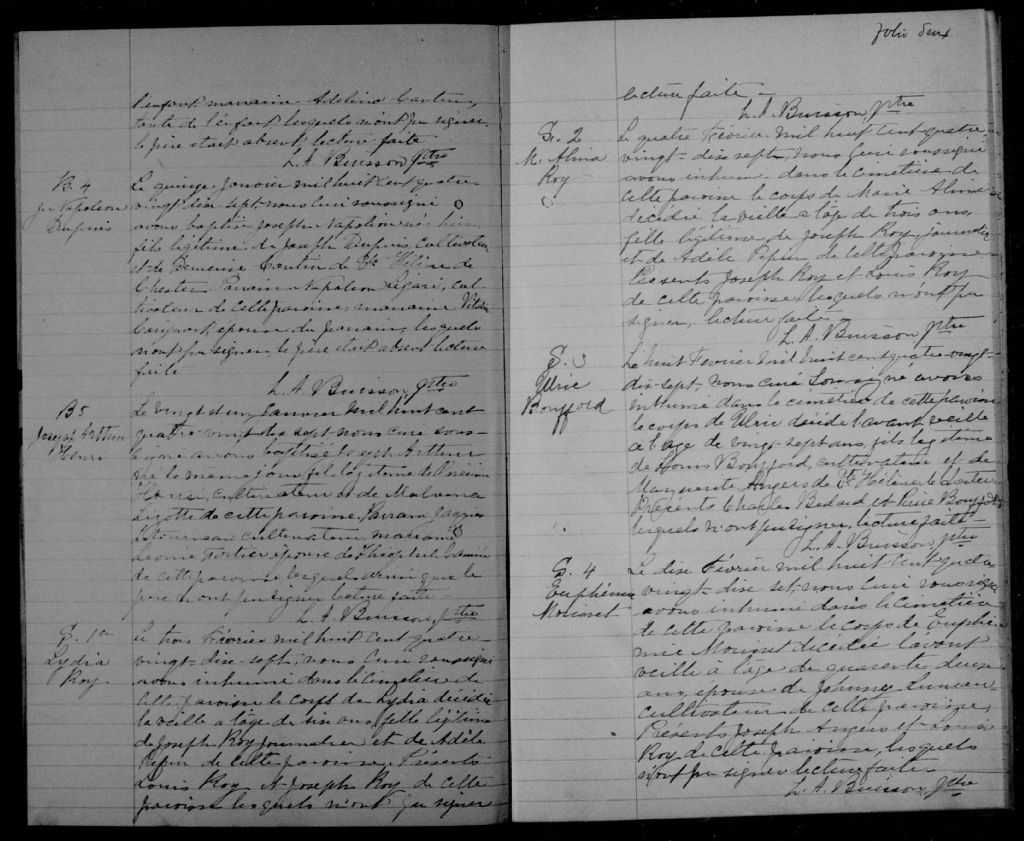 l'enfant marraine Adelina Cantin,
tante de l'enfant lesquels n'ont pu signer
le père était absent, lecture faite
L. A. Buisson, Ptre
B. 4
J. Napoleon
Dupuis
Le quinze janvier mil huit cent quatre
vingt dix sept, nous curé soussigné
avons baptisé Joseph Napoléon né hier
fils légitime de Joseph Dupuis, cultivateur
et de Demerise Cantin de Ste Hélène de
Chester Parrain Napoléon Légaré, cul-
tivateur de cette paroisse, marraine
épouse du parrain, lesquels
n'ont pu signer le père était absent lecture
faite
L. A. Buisson, Ptre
B 5
Joseph Arthur
Henri
Le vingt et un janvier mil huit cent
quatre-vingt dix sept nous curé sous-
signé avons baptisé Joseph Arthur
né le même jour fils légitime de
cultivateur et de
de cette paroisse, Parrain Jacques
cultivateur, marraine
Leonie Fortier épouse de
de cette paroisse lesquels ainsi que le
père n'ont pu signer lecture faite
L. A. Buisson, Ptre
S. 1re
Lydia
Roy
Le trois Février mil huit cent quatre-
vingt-dix-sept, nous curé soussigné
avons inhumé dans le cimetière de
cette paroisse le corps de Lydia décédée
la veille à l'âge de six ans, fille légitime
de Joseph Roy journalier et de Adèle
Pepin de cette paroisse. Présents
Louis Roy et Joseph Roy de cette
paroisse lesquels n'ont pu signer
Folio deux
lecture faite -
L. A. Buisson, Ptre
S. 2
M. Alma
Roy
Le quatre Février mil huit cent quatre-
vingt-dix sept, nous curé soussigné
avons inhumé dans le cimetière de
cette paroisse le corps de Marie Alma
décédée la veille à l'âge de trois ans,
fille légitime de Joseph Roy, journalier
et de Adèle Pépin de cette paroisse
Présents Joseph Roy et Louis Roy
de cette paroisse, lesquels n'ont pu
signer, lecture faite
L. A. Buisson, Ptre
S. 3
Ulric
Boufford
Le huit Février mil huit cent quatre-vingt-
dix-sept, nous curé soussigné avons
inhumé dans le cimetière de cette paroisse
le corps de Ulric décédé l'avant veille
à l'âge de vingt-sept ans, fils légitime
de Louis Boufford, cultivateur et de
Marguerite Angers de Ste Hélène de Chester
Présents Charles Bedard et Bouffard
lesquels n'ont pu signer, lecture faite -
L. A. Buisson, Ptre
S. 4
Euphémie
Mourset
Le dix Février mil huit cent quatre
vingt-dix set, nous curé soussigné
avons inhumé dans le cimetière
de cette paroisse le corps de Euphé-
mie Mourset décédée l'avant
veille à l'âge de quarante-deux
ans, épouse de Johnny Luneau,
cultivateur de cette paroisse,
Présents Joseph Angers et Louis
Roy de cette paroisse, lesquels
n'ont pu signer lecture faite -
L. A. Buisson, Ptre